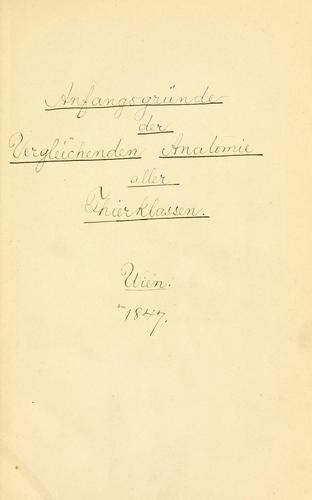 Anfangsgründe
der
Vergleichenden Anatomie
aller
Thierklassen.
Wien.
1847.